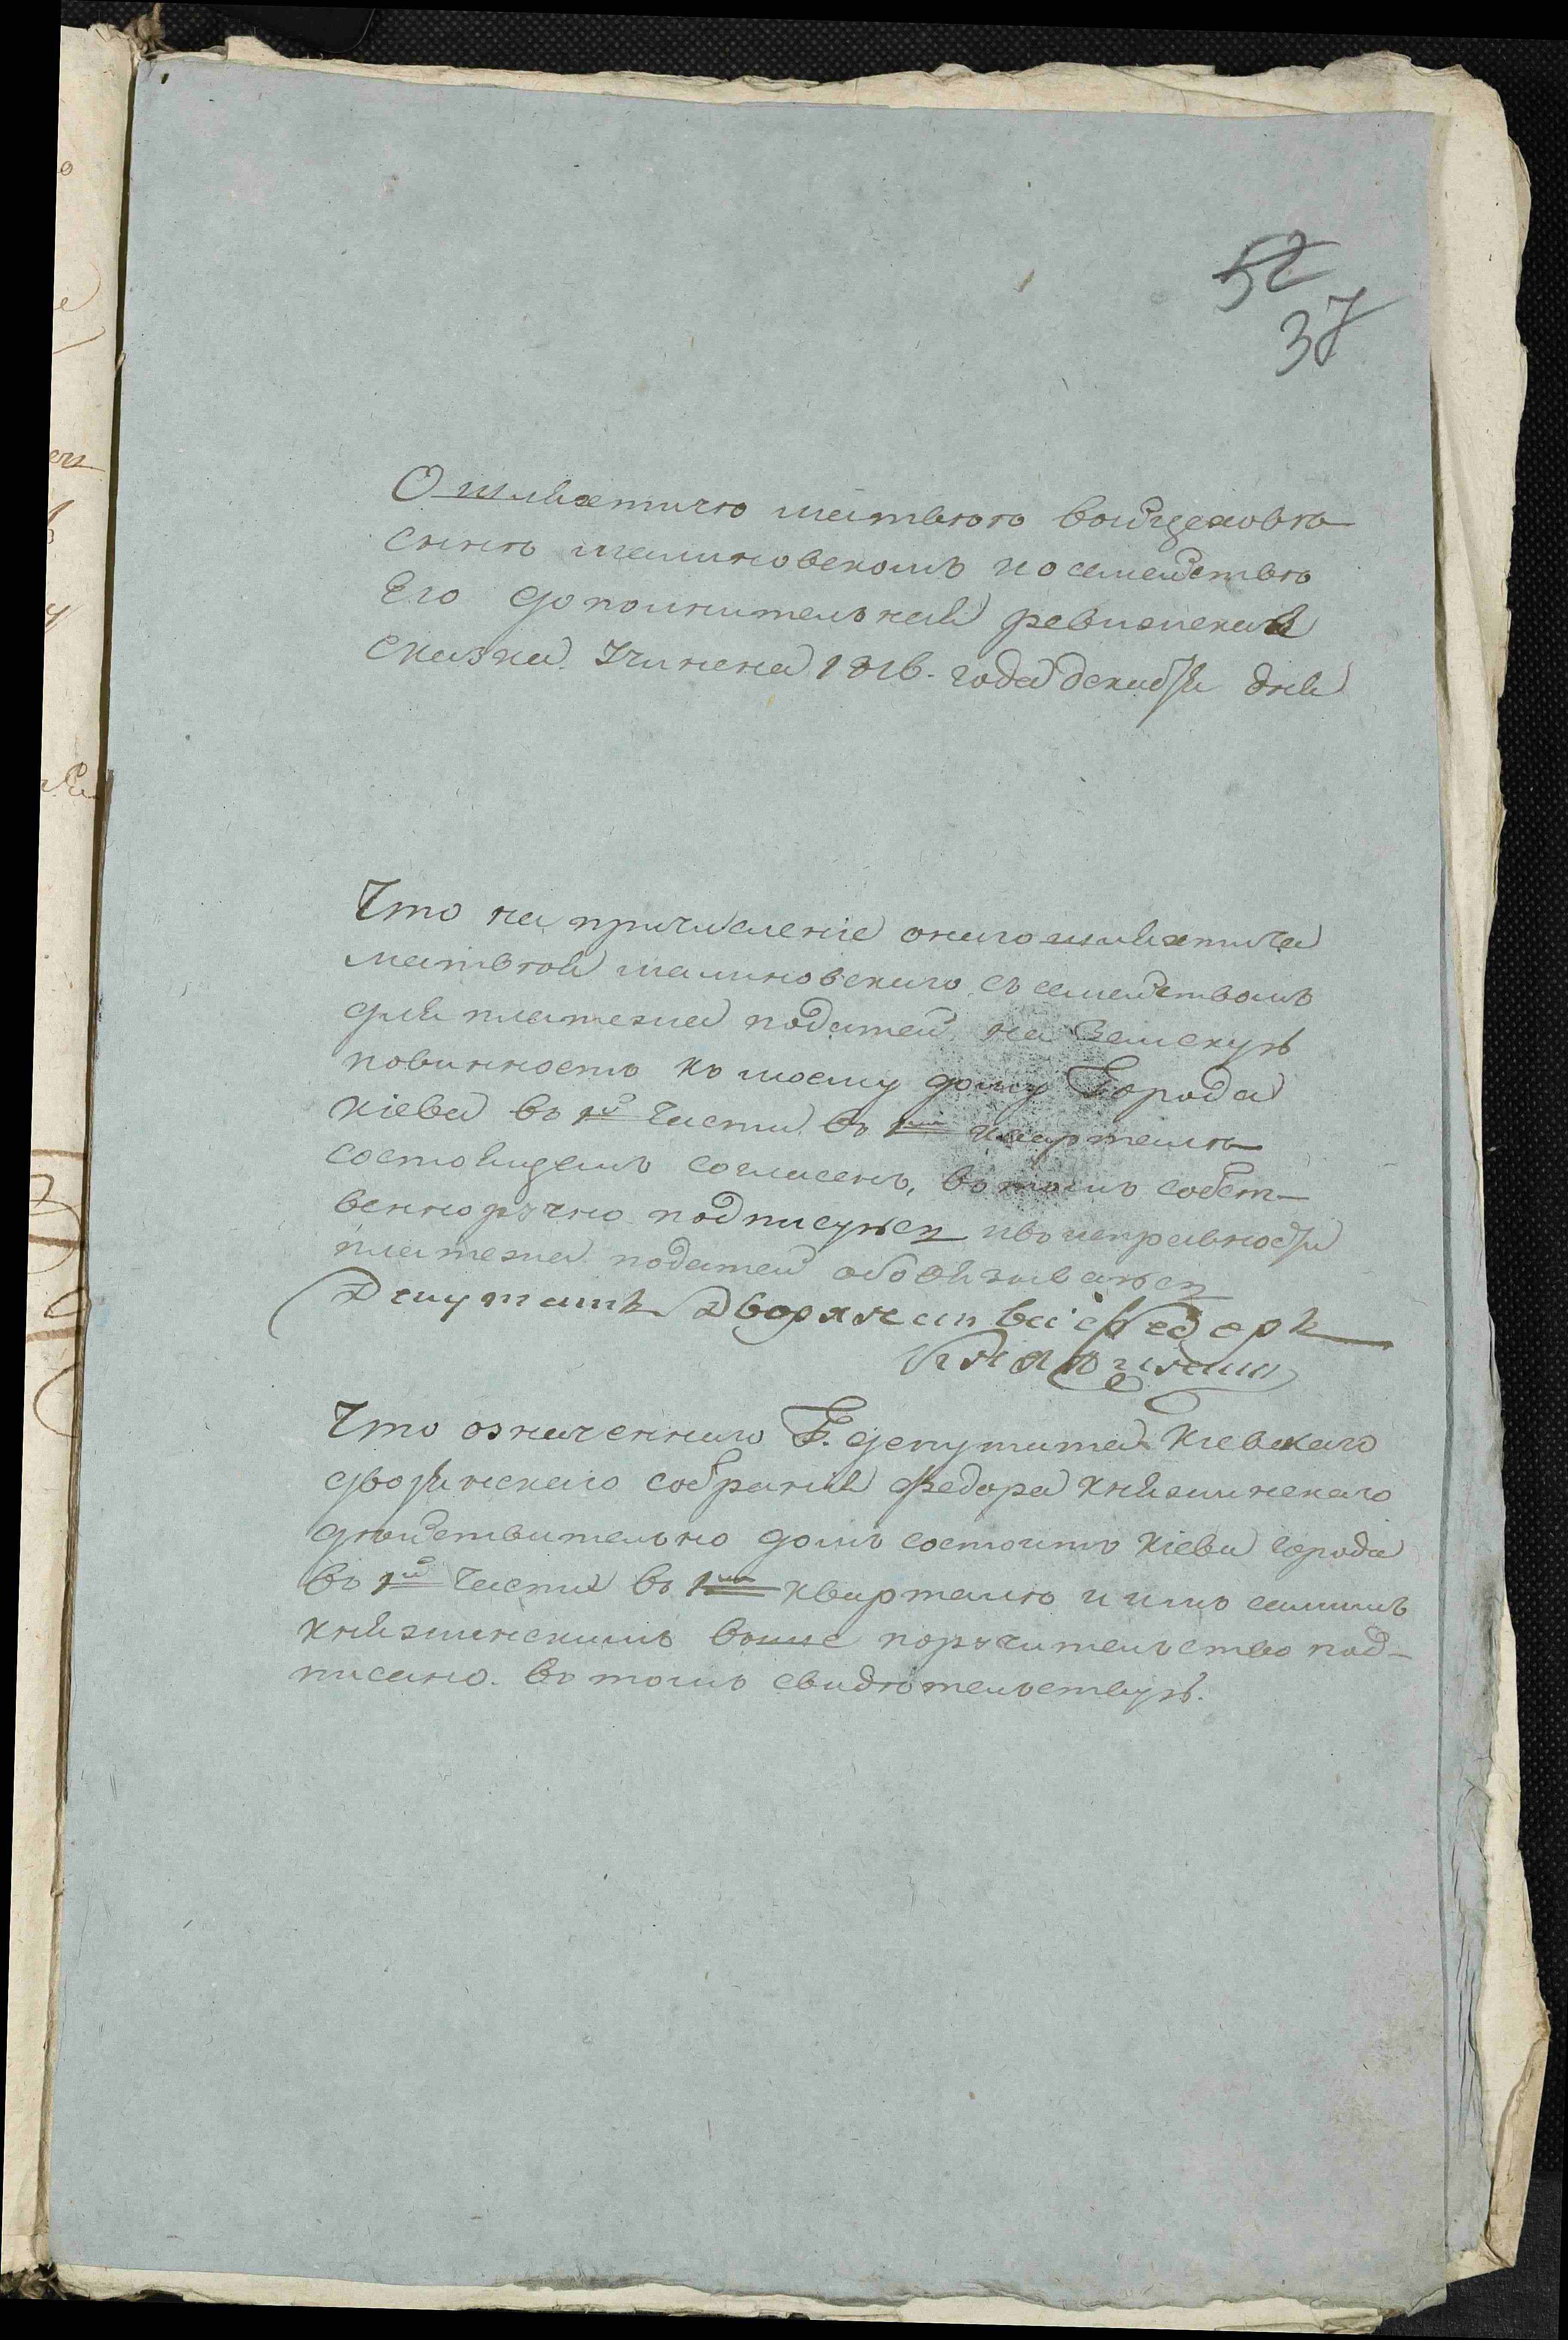 52
37
О шляхтичѣ матвѣѣ войцеховѣ
сынѣ малиновскомъ и о семействѣ
Его дополнительная ревизская
сказка. Учинена 1816. года декабря дня
Что на причисление онаго шляхтича
матвѣя малиновскаго съ семействомъ
для платежа податей на Земскую
повинность къ моему дому Города
кіева въ 1й части въ 1мъ квартале
состоящемъ согласенъ, въ томъ собст-
венноручно подписуюсь и въ исправности
платежа податей обовязываюсь
Депутатъ Дворянства Федоръ
что означеннаго Г. депутата Кіевскаго
дворянскаго собрания Федора княжинскаго
дѣйствительно домъ состоитъ кіева города
въ 1й части въ 1мъ кварталѣ и имъ самимъ
княжинскимъ выше поручительство под-
писано. въ томъ свидѣтельствую.